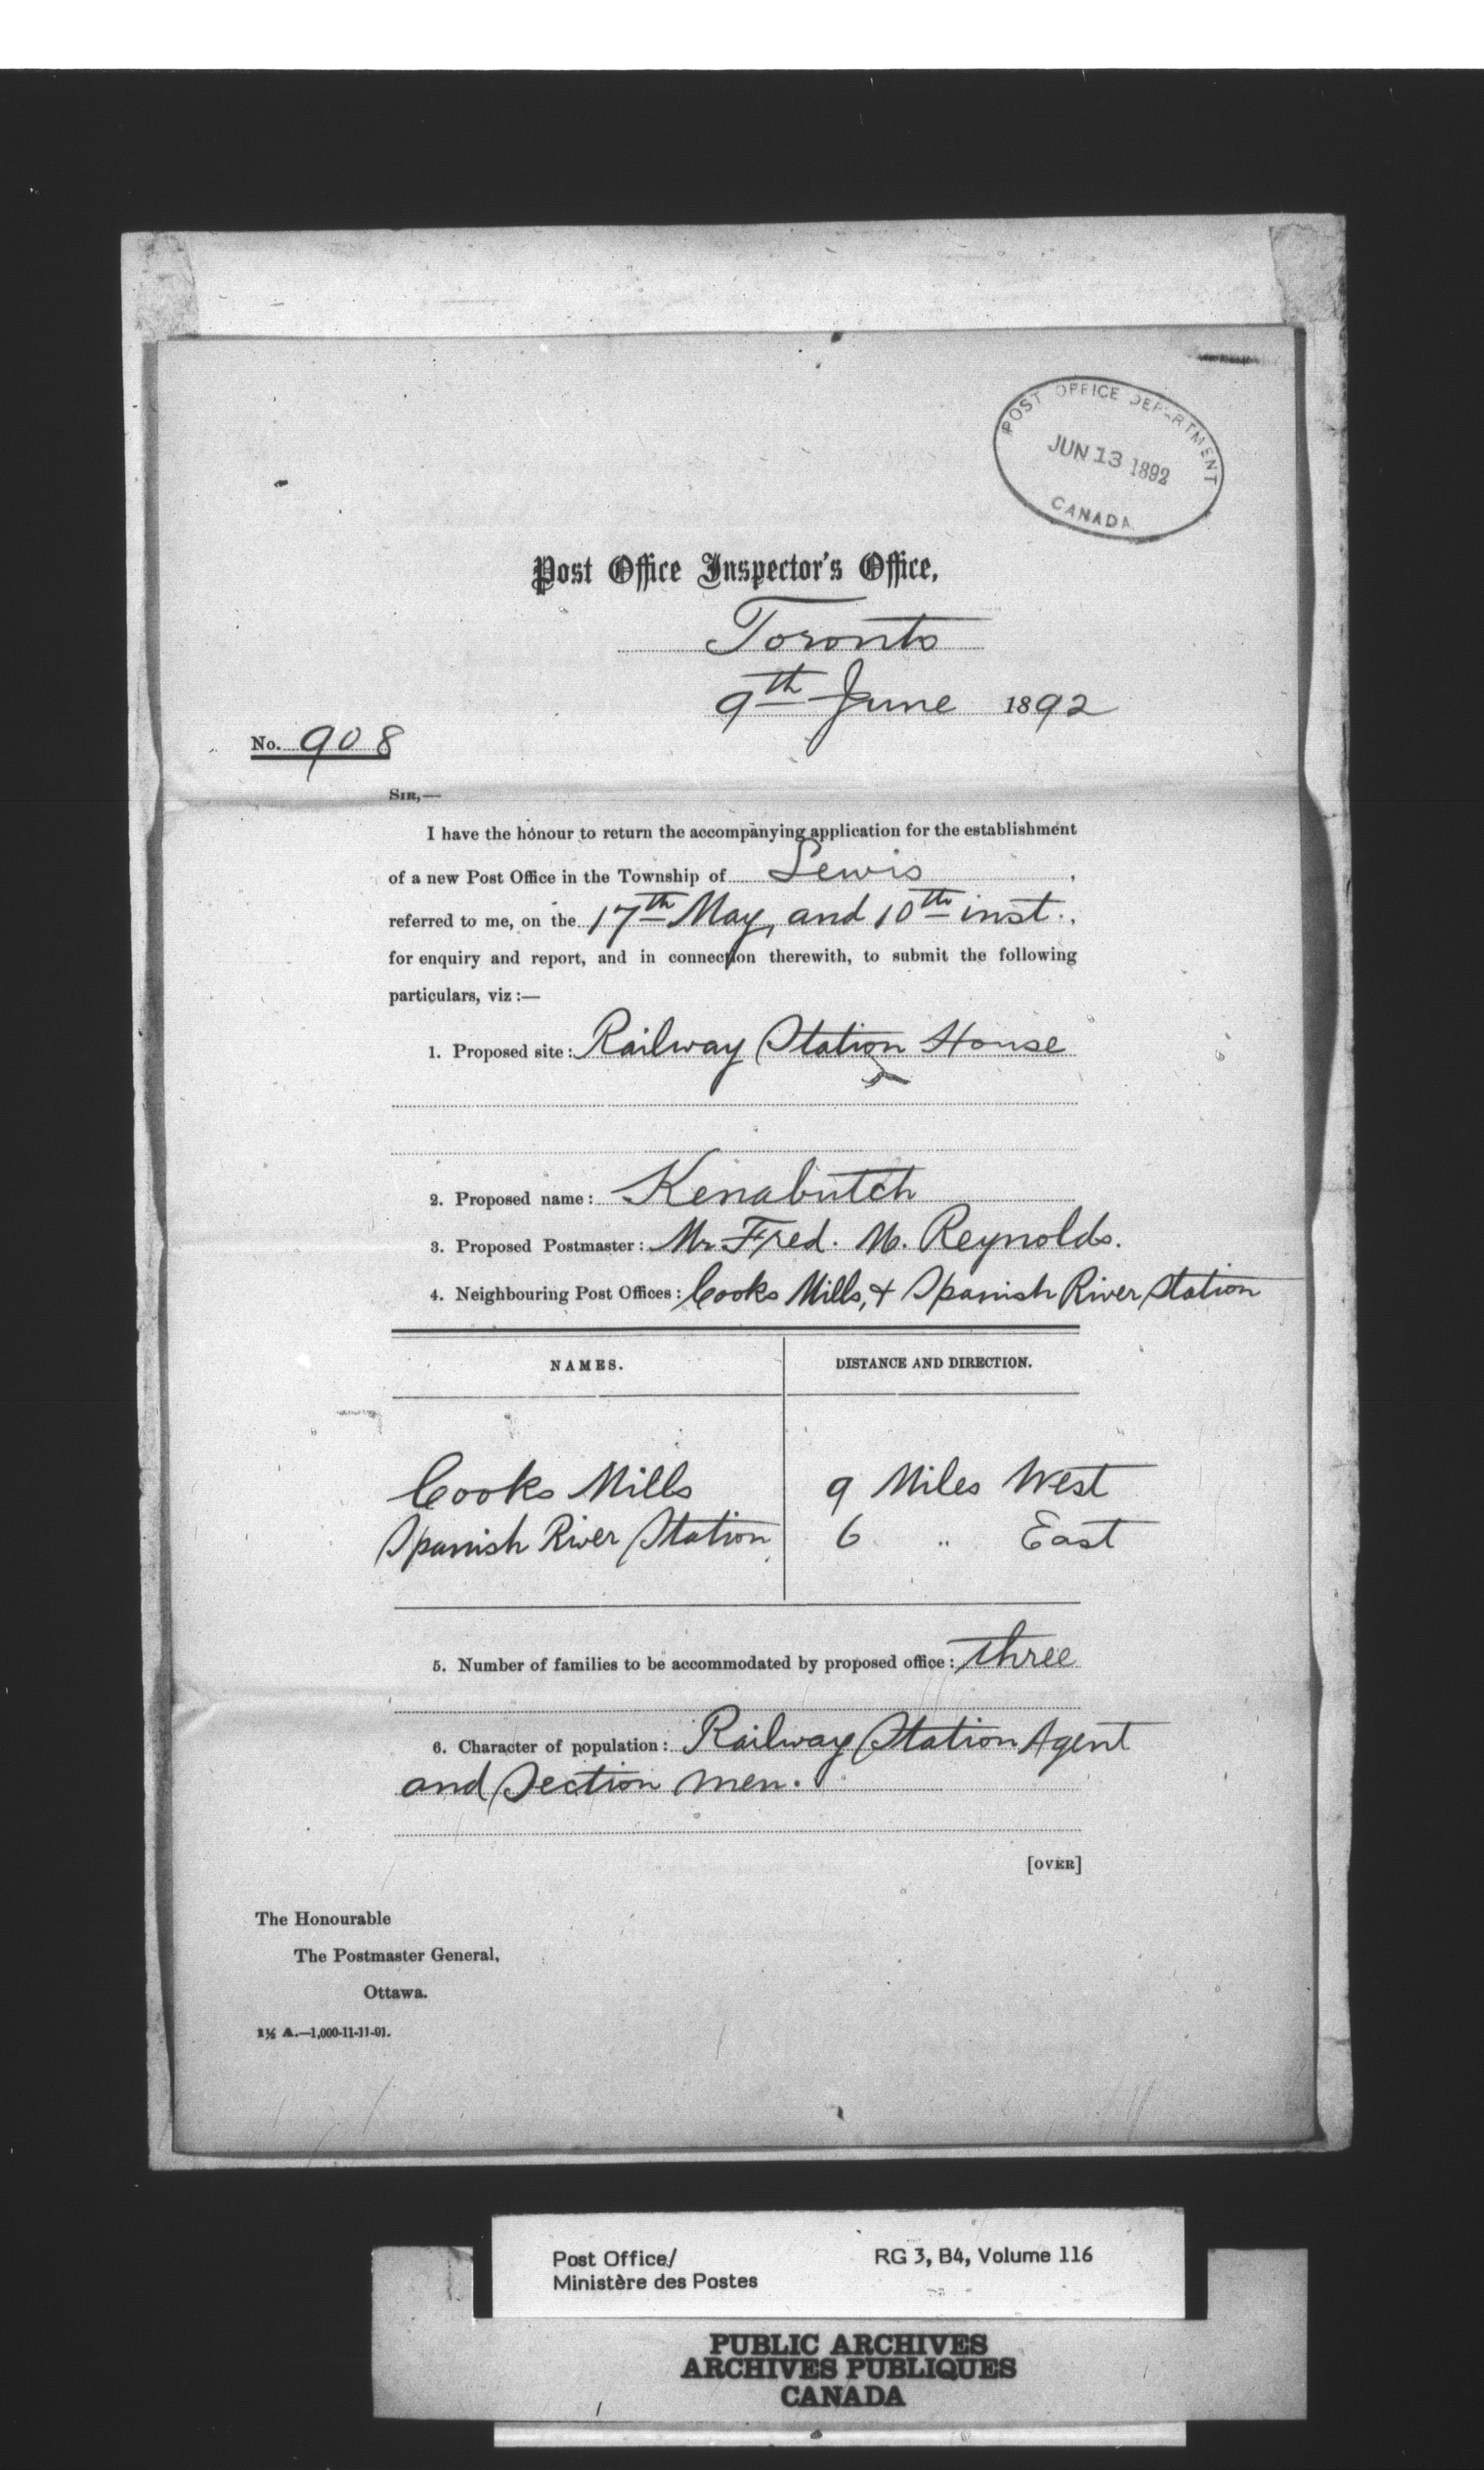 POST OFFICE DEPARTMENT
JUN 13 1892
CANADA
Post Office Inspector's Office,
Toronto
9th June 1892
No. 908
SIR,—
I have the honour to return the accompanying application for the establishment
of a new Post Office in the Township of Lewis,
referred to me, on the 17th May, and 10th inst.,
for enquiry and report, and in connection therewith, to submit the following
particulars, viz :—
1. Proposed site: Railway Station House
2. Proposed name: Kenabutch
3. Proposed Postmaster: Mr. Fred. M. Reynolds.
4. Neighbouring Post Offices: Cooks Mills, & Spanish River Station
NAMES. DISTANCE AND DIRECTION.
Cooks Mills 9 Miles West
Spanish River Station 6 " East
5. Number of families to be accommodated by proposed office: three
6. Character of population: Railway Station Agent
and Section men.
[OVER]
The Honourable
The Postmaster General,
Ottawa.
1½ A.—1,000-11-11-91.
Post Office/ RG 3, B4, Volume 116
Ministère des Postes
PUBLIC ARCHIVES
ARCHIVES PUBLIQUES
CANADA